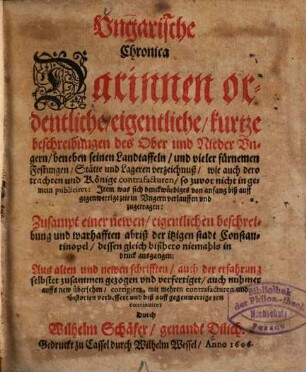 Vngarische
Chronica
Darinnen or-
dentliche/eigentliche/kurtze
beschreibungen des Ober und Nieder Vn-
gern/beneben seinen Landtaffeln/und vieler fürnemen
Festungen/Stätte und Lägern verzeichnuß/wie auch dero
trachten und Könige contrafacturen/so zuvor nicht in ge-
mein publiciret: Item was sich denckwürdiges von anfang biß auff
gegenwertige zeit in Vngern verlauffen und
zugetragen:
Zusampt einer newen/eigentlichen beschrei-
bung und warhafften abriß der itzigen stadt Constan-
tinopel/dessen gleich bißhero niemahls in
druck ausgangen:
Aus alten und newen schrifften/auch der erfahrung
selbster zusammen gezogen und verfertiget/auch nuhmer
auffs new übersehen/corrigirt/mit mehren contrafacturen und
historien verbessert und biß auff gegenwertige zeit
continuiret
Durch
Wilhelm Schäfer/genandt Dilich.
Gedruckt zu Cassel durch Wilhelm Wessel/Anno 1606.
Bibliothek
der Philos.-theol.
Hochschule
Passau